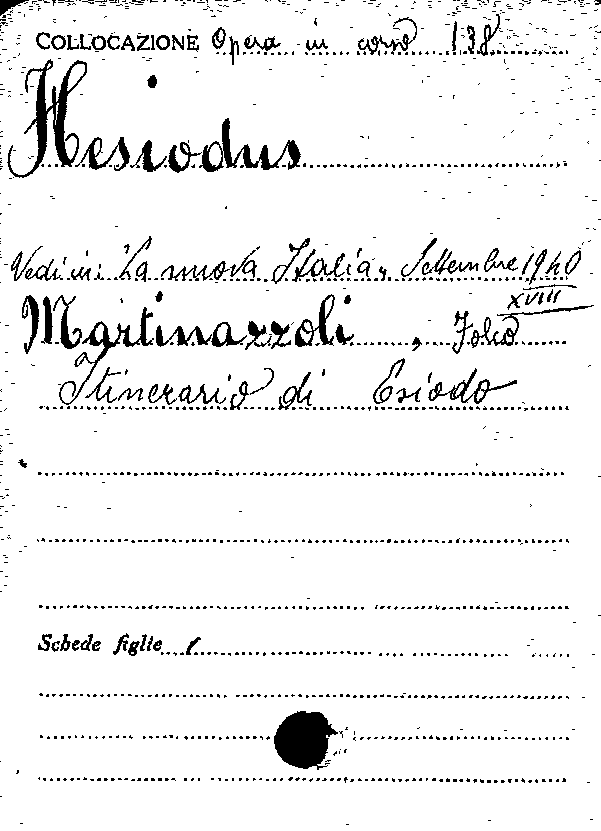 COLLOCAZIONE Opera in corso 138
Hesiodus
Vedi in: La nuova Italia, Settembre 1940
XVIII
Martinazzoli, Folco
Itinerario di Esiodo
Schede figlie 1